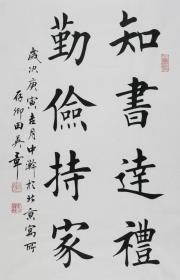 知書達禮
勤儉持家
歲次庚寅吉月中澣於北京寫所
存卿田英章